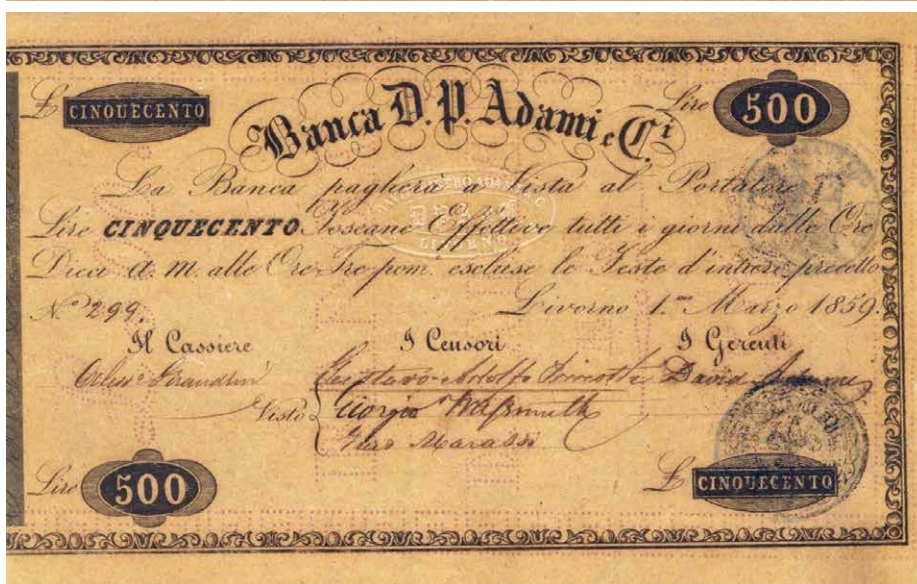 £ CINQUECENTO
Lire 500
Banca D. P. Adami e C.i
La Banca pagherà a Vista al Portatore
Lire CINQUECENTO Toscane Effettive tutti i giorni dalle Ore
Dieci a. m. alle Ore Tre pom. escluse le Feste d'intiero precetto
N.o 299.
Livorno 1.mo Marzo 1859.
Il Cassiere
I Censori
I Gerenti
Gustavo Adolfo
David Adami
Visto
Giorgio
Lire 500
£ CINQUECENTO
LIVORNO